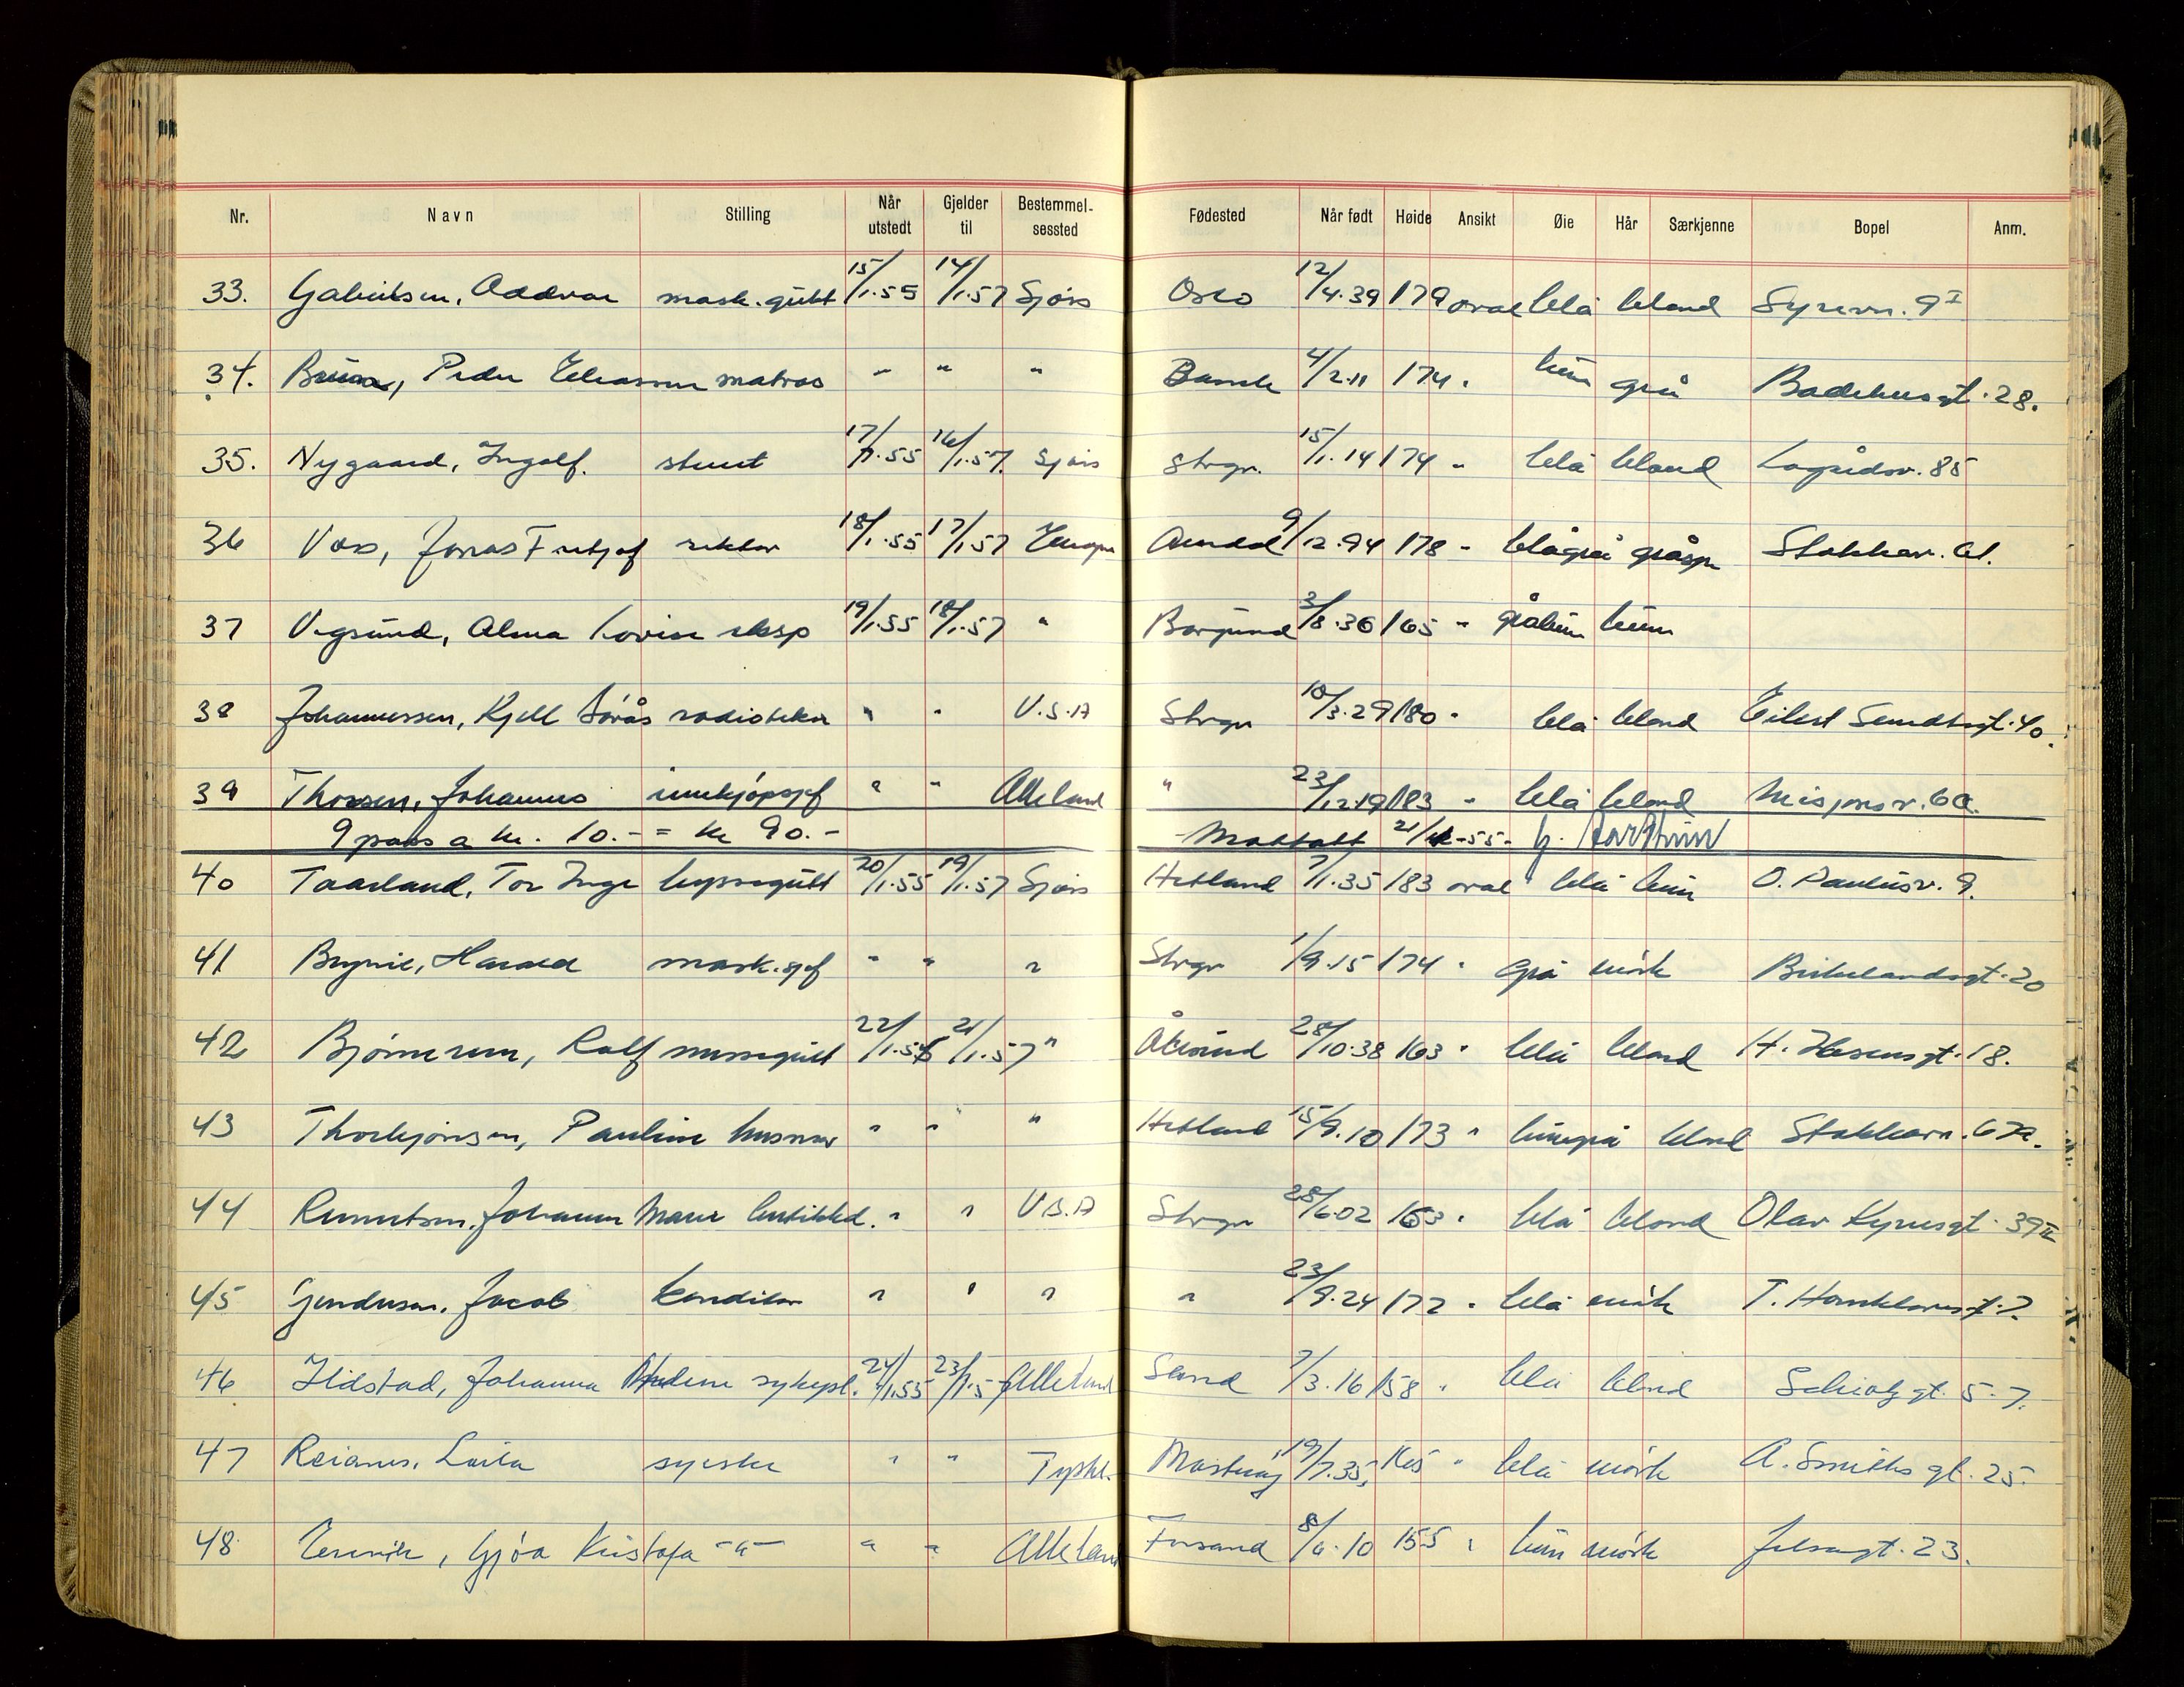 Nr. Navn Stilling Når utstedt Gjelder til Bestemmel-sessted Fødested Når født Høide Ansikt Øie Hår Særkjenne Bopel Anm.
33. Gabrielsen, Oddvar mask.gutt 15/1.55 14/1.57 Sjøis Oslo 12/4.39 179 oval blå blond Syrevn. 9 I
34. Peder Eliassen matros " " " Bamle 4/2.11 174 " brun grå Badehusgt. 28.
35. Nygaard, Ingolf. stuert 17/1.55 16/1.57. Sjøis Strgr. 15/1.14 174 " blå blond Lagårdsv. 85
36 Vaas, Jonas Fritjof rektor 18/1.55 17/1.57 Europa Arendal 9/12.94 178 " blågrå gråspr Stokkav. 61.
37 Vigsund, Alma Lovise eksp 19/1.55 18/1.57 " Borgund 3/8.36 165 " gråbrun brun
38 Johannessen, Kjell Sørås radiotekn " " U.S.A Strgr 10/3.29 180 " blå blond Eilert Sundtsgt. 40.
39 Thorsen, Johannes innkjøpssjef " " Alle land " 23/12.19 183 " blå blond Misjonsv. 6a.
9 pass a kr. 10.- = kr 90.- Mottatt 21/1-55.
40 Taarland, Tor Inge byssegutt 20/1.55 19/1.57 Sjøis Hetland 7/1.35 183 oval blå brun O. Paulusv. 9.
41 Brynie, Harald mask.sjef " " " Strgr 1/9.15 174 " grå mörk Birkelandsgt. 20
42 Bjørnersen, Rolf messegutt 22/1.55 21/1.57 " Åkösund 28/10.38 163 " blå blond H. Ibsensgt. 18.
43 Thorbjørnsen, Pauline husmor " " " Hetland 15/9.10 173 " brungrå blond Stokkavn. 67a.
44 Johanna Marie butikkd. " " U.S.A Strgr 28/6.02 163 " blå blond Olav Kyrresgt. 39 II
45 Gundersen, Jacob konditor " " " " 23/9.24 172 " blå mörk T. 7
46 Ildstad, Johanna sykepl. 24/1.55 23/1.57 Alle land Sand 7/3.16 158 " blå blond Schiøtzgt. 5-7.
47 Reianes, Laila syerske " " Tyskl. Mosterøy 19/7.35, 165 " blå mörk A. Smithsgt. 25.
48 Gjøa Kristofa -"- " " Alle land Forsand 8/6.10 155 " brun mörk Jelsagt. 23.